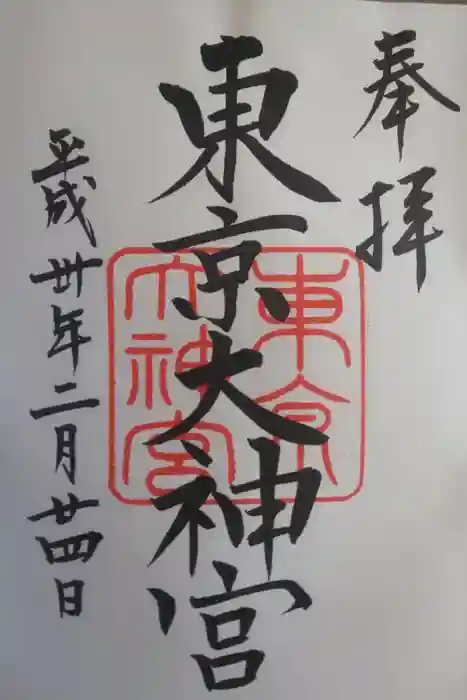 奉拝
東京大神宮
平成丗年二月廿四日
東京
大神宮